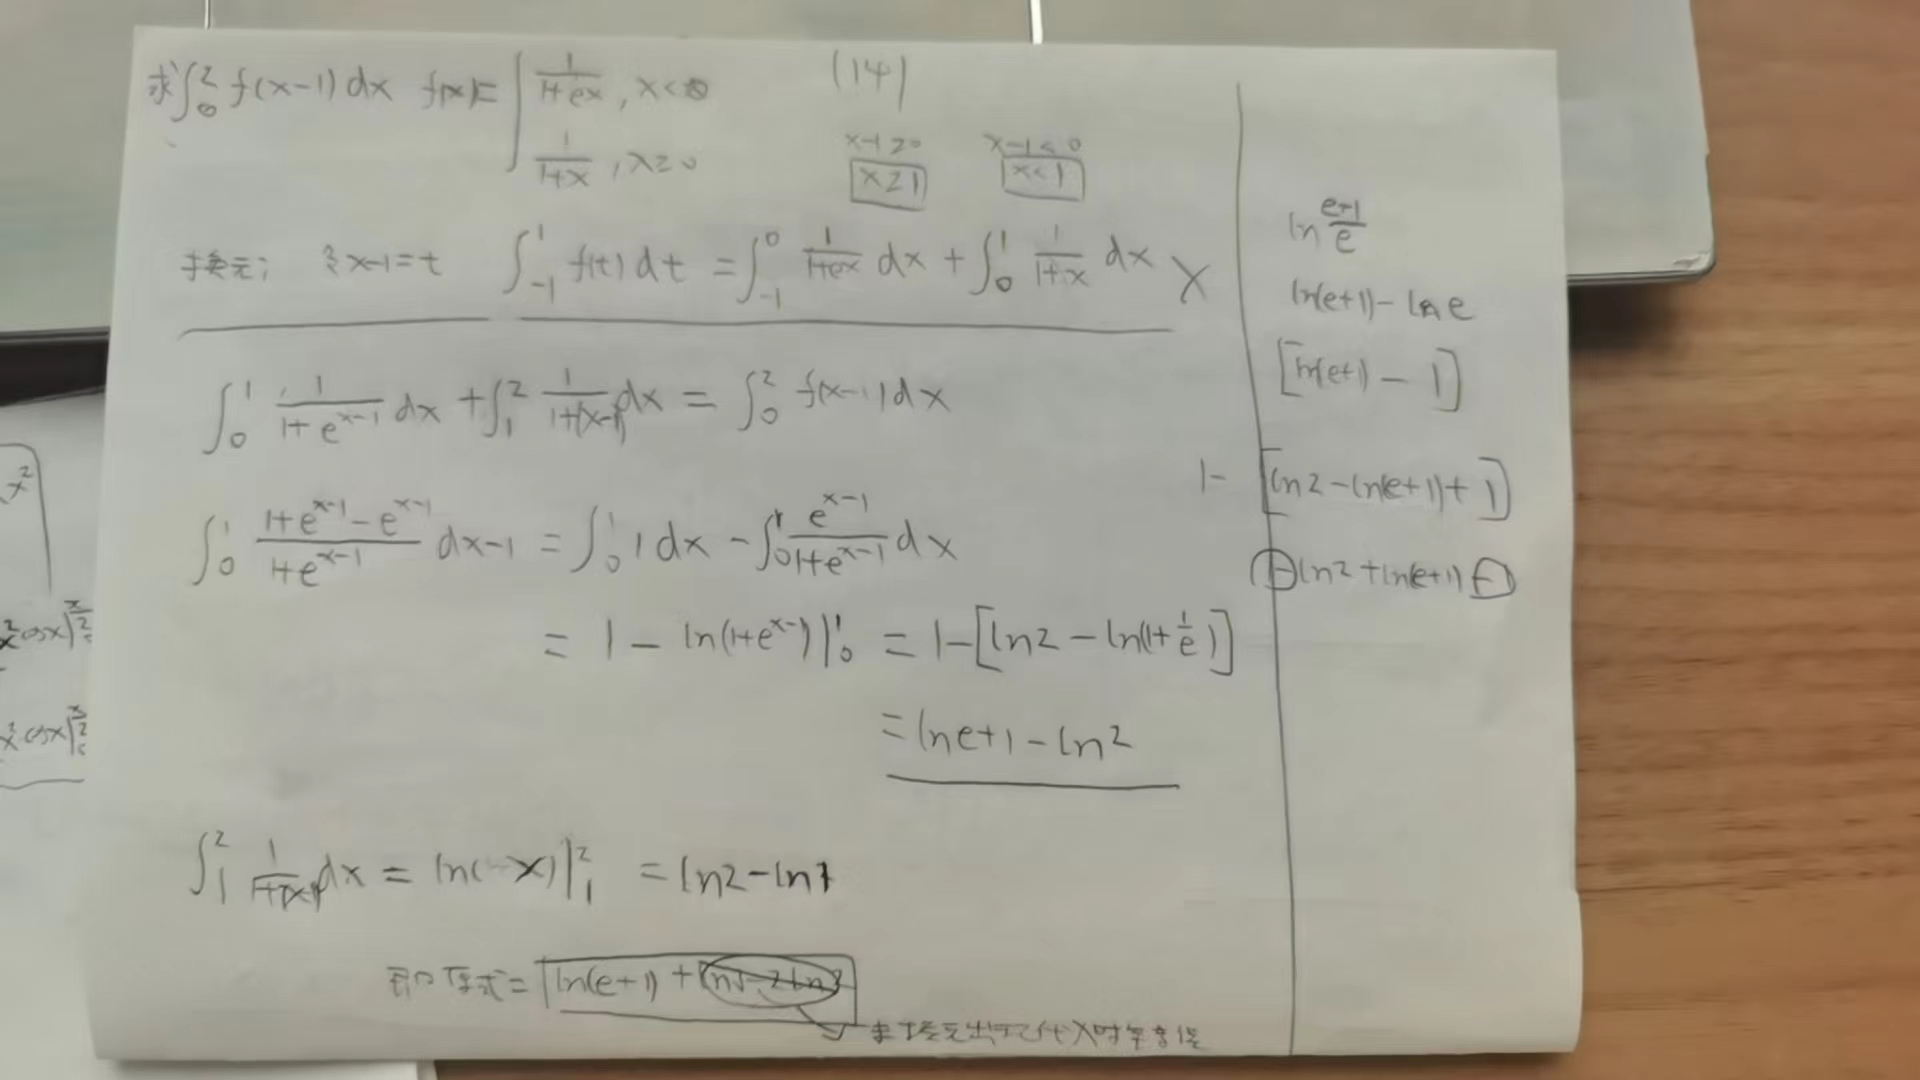 求∫₀² f(x-1)dx f(x)= { 1/(1+eˣ), x<0
1/(1+x), x≥0
(14)
x-1≥0 x-1<0
x≥1 x<1
换元: 令x-1=t ∫₋₁¹ f(t)dt = ∫₋₁⁰ 1/(1+eˣ) dx + ∫₀¹ 1/(1+x) dx X
∫₀¹ 1/(1+e^(x-1)) dx + ∫₁² 1/(1+(x-1)) dx = ∫₀² f(x-1)dx
∫₀¹ (1+e^(x-1)-e^(x-1))/(1+e^(x-1)) dx-1 = ∫₀¹ 1dx - ∫₀¹ e^(x-1)/(1+e^(x-1)) dx
= 1 - ln(1+e^(x-1))|₀¹ = 1-[ln2 - ln(1+1/e)]
= lne+1-ln2
∫₁² 1/(1+(x-1)) dx = ln(x)|₁² = ln2-ln1
即原式= ln(e+1) +
ln (e+1)/e
ln(e+1)-lne
[ln(e+1) - 1]
1- [ln2-ln(e+1)+1]
-ln2+ln(e+1)-
x²
x²cosx|
x²cosx|